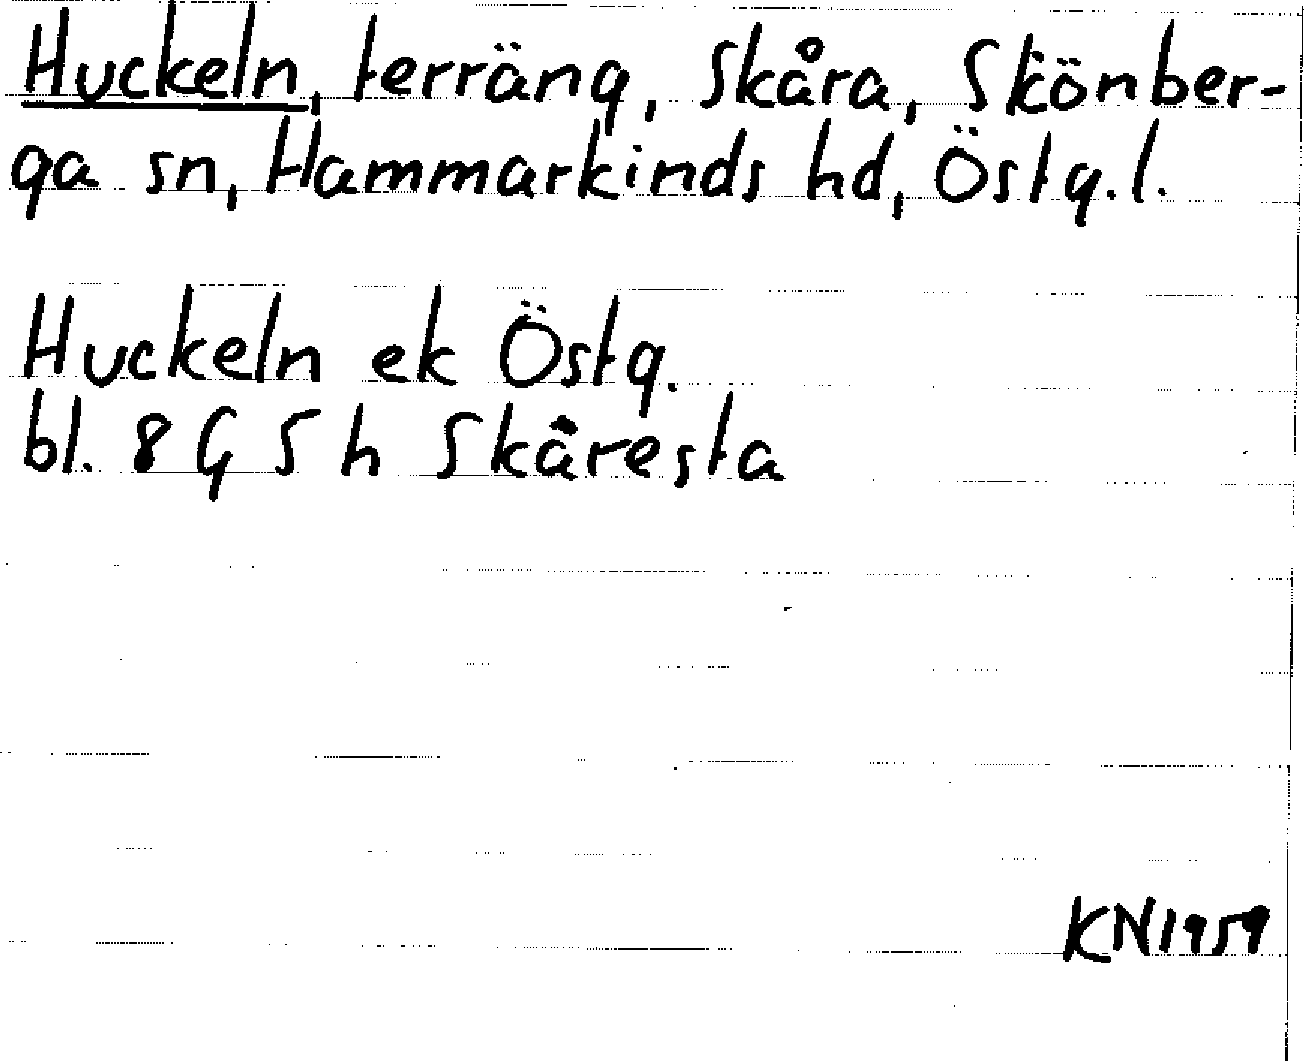 Huckeln, terräng, Skåra, Skönber-
ga sn, Hammarkinds hd, Östg. l.
Huckeln ek Östg.
bl. 8 G 5 h Skåresta
KN 1959